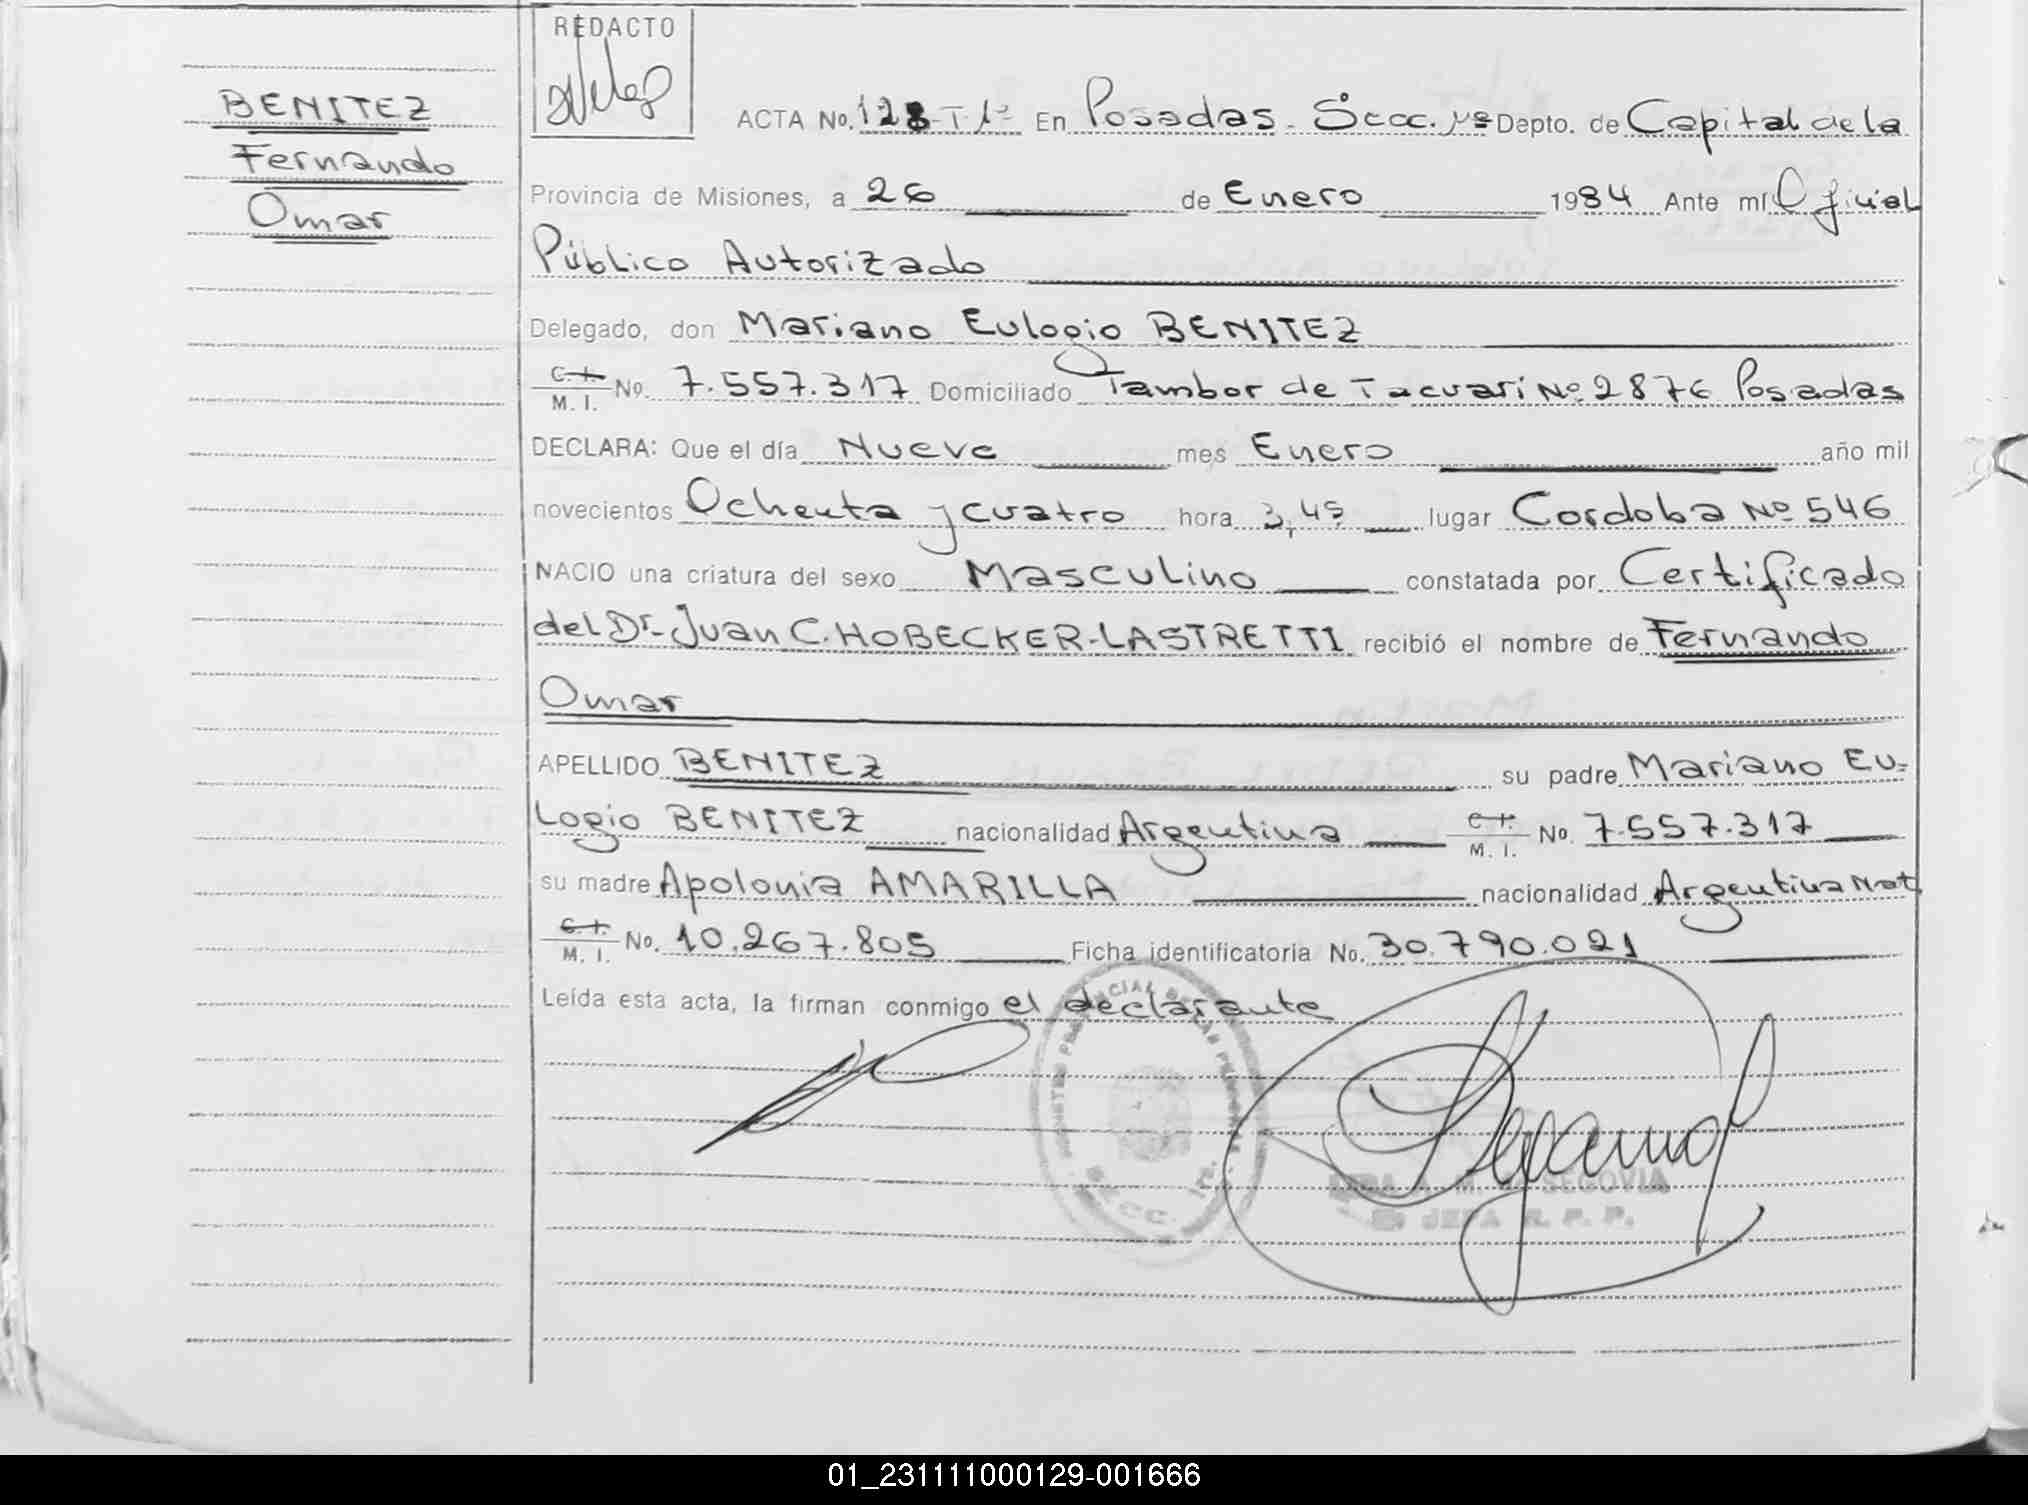 BENITEZ
Fernando
Omar
REDACTO
ACTA No. 128-T1º En Posadas. Secc. 1ª Depto. de Capital de la
Provincia de Misiones, a 26 de Enero 1984 Ante mí Oficial
Público Autorizado
Delegado, don Mariano Eulogio BENITEZ
C. I. M. I. No. 7.557.317 Domiciliado Tambor de Tacuari Nº 2876 Posadas
DECLARA: Que el día Nueve mes Enero año mil
novecientos Ochenta y cuatro hora 3,45 lugar Cordoba Nº 546
NACIO una criatura del sexo Masculino constatada por Certificado
del Dr. Juan C. HOBECKER-LASTRETTI recibió el nombre de Fernando
Omar
APELLIDO BENITEZ su padre Mariano Eu-
Logio BENITEZ nacionalidad Argentina C. I. M. I. No. 7.557.317
su madre Apolonia AMARILLA nacionalidad Argentina Nat.
C. I. M. I. No. 10.267.805 Ficha identificatoria No. 30.790.021
Leída esta acta, la firman conmigo el declarante
SEGOVIA
JEFA R. P. P.
SECC. 1ra.
01_231111000129-001666